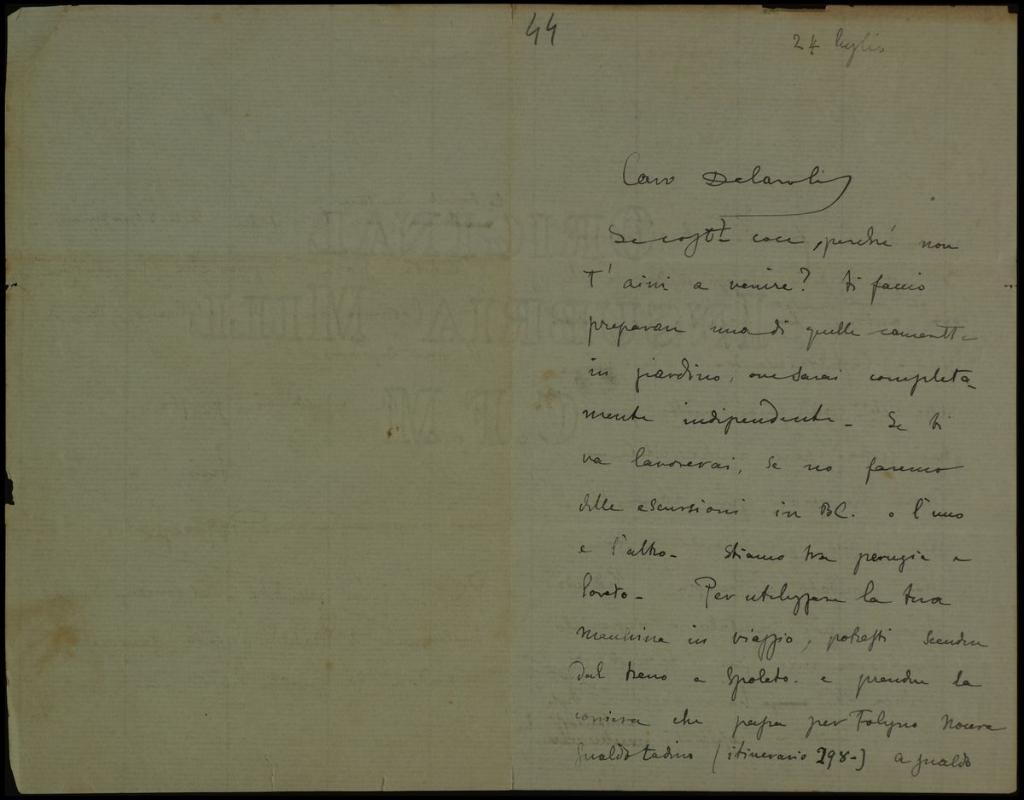 44
24 luglio
Caro Delaroli
Se costì cuoce, perché non
t'aini a venire? ti faccio
preparare una di quelle camerette
in giardino, ove sarai completa-
mente indipendente - Se ti
va lavorerai, se no faremo
delle escursioni in BC. o l'uno
e l'altro - Stiamo tra Perugia e
Loreto - Per utilizzare la tua
macchina in viaggio, potresti scendere
dal treno a Spoleto. e prendere la
corriera che passa per Foligno Nocera
Gualdo tadino (itinerario 298-) a gualdo
ORIGINAL
INSUBRIA MILL
C.F.M